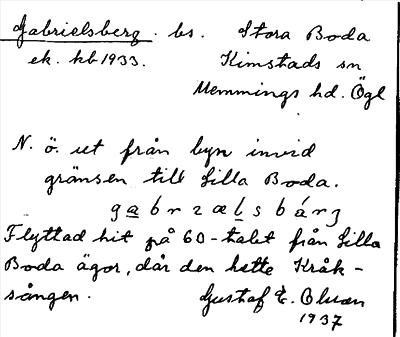 Gabrielsberg. bs. Stora Boda
ek. kb 1933. Kimstads sn
Memmings hd. Ögl
N. ö. ut från byn invid
gränsen till Lilla Boda.
gabrzælsbárʒ
Flyttad hit på 60-talet från Lilla
Boda ägor, där den hette Kråk-
sången. Gustaf E. Olson
1937